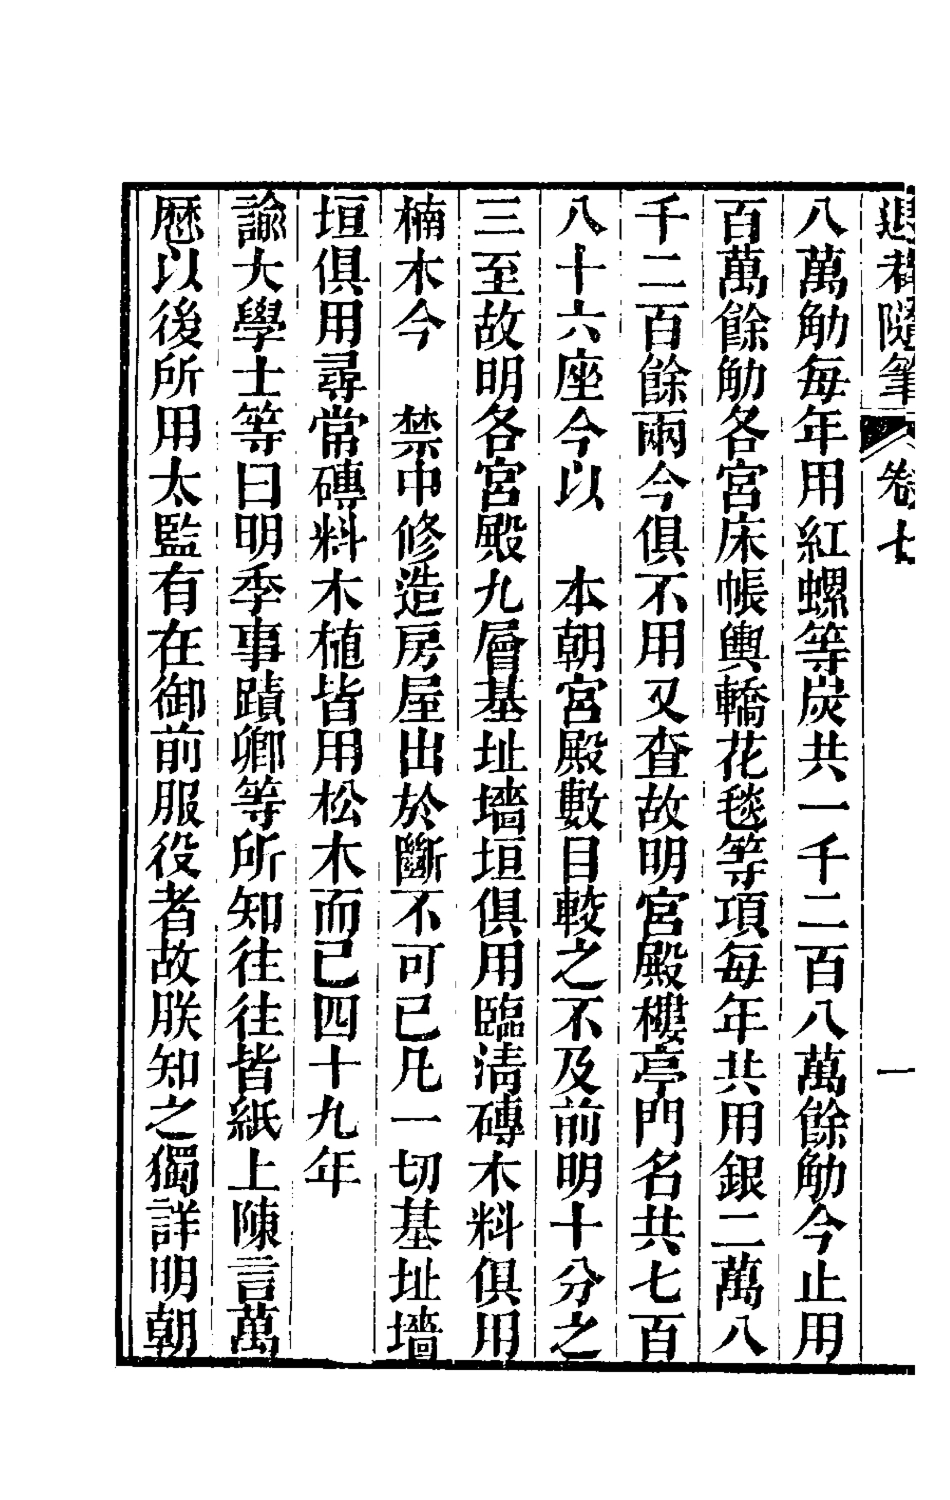 退菴隨筆 卷七 一
八萬觔每年用紅螺等炭共一千二百八萬餘觔今止用
百萬餘觔各宮床帳輿轎花毯等項每年共用銀二萬八
千二百餘兩今俱不用又查故明宮殿樓亭門名共七百
八十六座今以　本朝宮殿數目較之不及前明十分之
三至故明各宮殿九層基址墻垣俱用臨清磚木料俱用
楠木今　禁中修造房屋出於斷不可已凡一切基址墻
垣俱用尋常磚料木植皆用松木而已四十九年
諭大學士等曰明季事蹟卿等所知往往皆紙上陳言萬
歷以後所用太監有在御前服役者故朕知之獨詳明朝